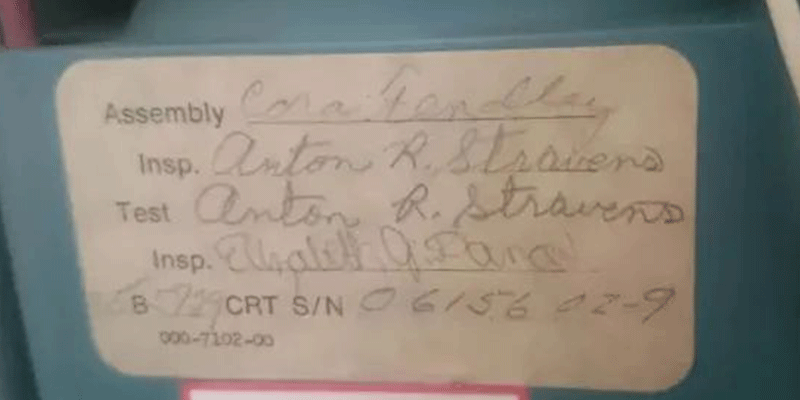 Assembly Cora Fendley
Insp. Anton R. Stravens
Test Anton R. Stravens
Insp. Elizabeth G.
B CRT S/N 06156 02-9
000-7102-00